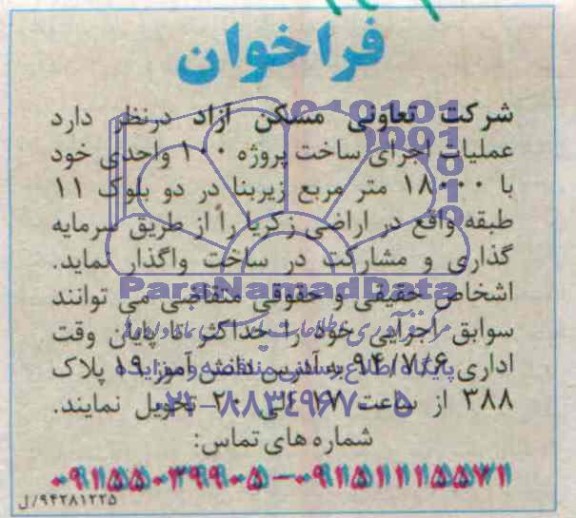 فراخوان
شرکت تعاونی مسکن آزاد درنظر دارد
عملیات اجرای ساخت پروژه ۱۰۰ واحدی خود
با ۱۸۰۰۰ متر مربع زیربنا در دو بلوک ۱۱
طبقه واقع در اراضی زکریا را از طریق سرمایه
گذاری و مشارکت در ساخت واگذار نماید.
ParsNamadData
اشخاص حقیقی و حقوقی متقاضی می توانند
سوابق اجرایی خود را حداکثر تا پایان وقت
اداری ۹۴/۷/۶ به آدرس دانش آموز ۱۹ پلاک
۳۸۸ از ساعت ۱۷ الی ۲۰ تحویل نمایند.
۰۲۱-۸۸۳۴۹۶۷۰-۵
شماره های تماس:
۰۹۱۵۱۱۱۵۵۷۱-۰۹۱۵۵۰۳۹۹۰۵
۹۴۲۸۱۲۲۵/ل